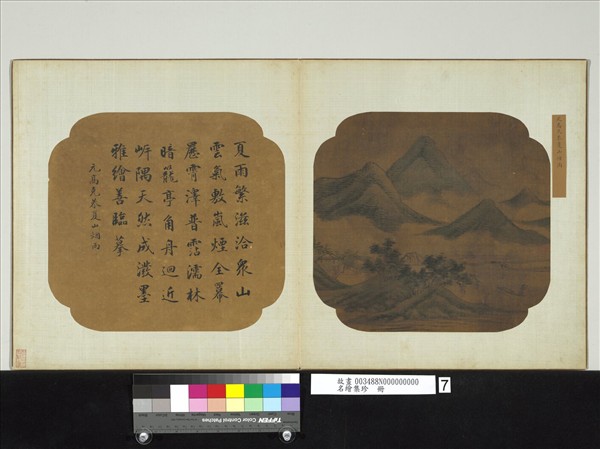 夏雨繁滋洽衆山
雲氣敷嵐煙全羃
層霄澤普霑濡林
暗籠亭角舟迴近
㟁隅天然成潑墨
雅繪善臨摹
元高克恭夏山雨
故畫 003488N000000000
名繪集珍 冊
7
TIFFEN Color Control Patches